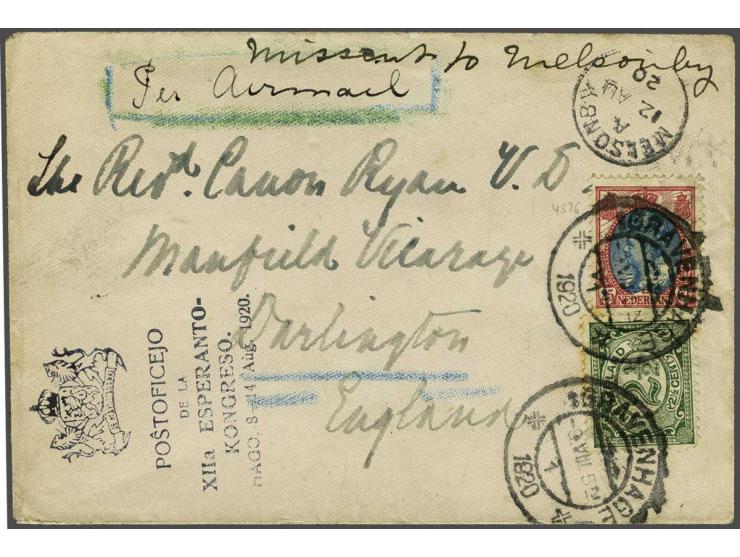 missent to Melsonby
Per Airmail
The Revd. Canon Ryan V.D.
Manfield Vicarage
Darlington
England
4526
MELSONBY
A
12 AU
20
'SGRAVENHAGE
1920
NEDERLAND
'SGRAVENHAGE
1920
2½ CENT
POŜTOFICEJO
DE LA
XIIa ESPERANTO-
KONGRESO.
HAGO. 8–14 Aug. 1920.